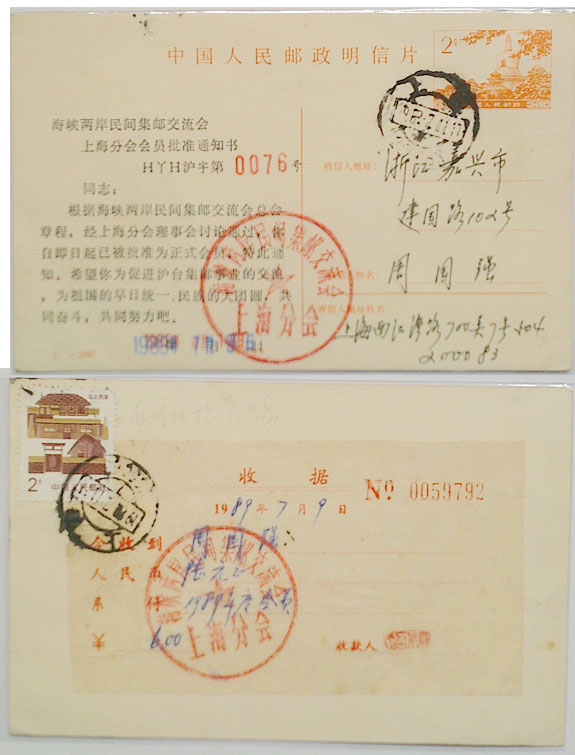 中国人民邮政明信片
2分
中国人民邮政
海峡两岸民间集邮交流会
上海分会会员批准通知书
HYH沪字第0076号
同志:
根据海峡两岸民间集邮交流会总会
章程,经上海分会理事会讨论通过,你
自即日起已被批准为正式会员,特此通
知。希望你为促进沪台集邮事业的交流
,为祖国的早日统一、民族的大团圆,共
同奋斗,共同努力吧。
收信人地址:
浙江嘉兴市
建国路102号
周国强
上海西江湾路700弄7号504
200083
海峡两岸民间集邮交流会
上海分会
2分
中国人民邮政
收据
Nº 0059792
1989年7月9日
今收到 周国强
人民币 陆元正
系付 1989年度会员
¥ 6.00
收款人
海峡两岸民间集邮交流会
上海分会